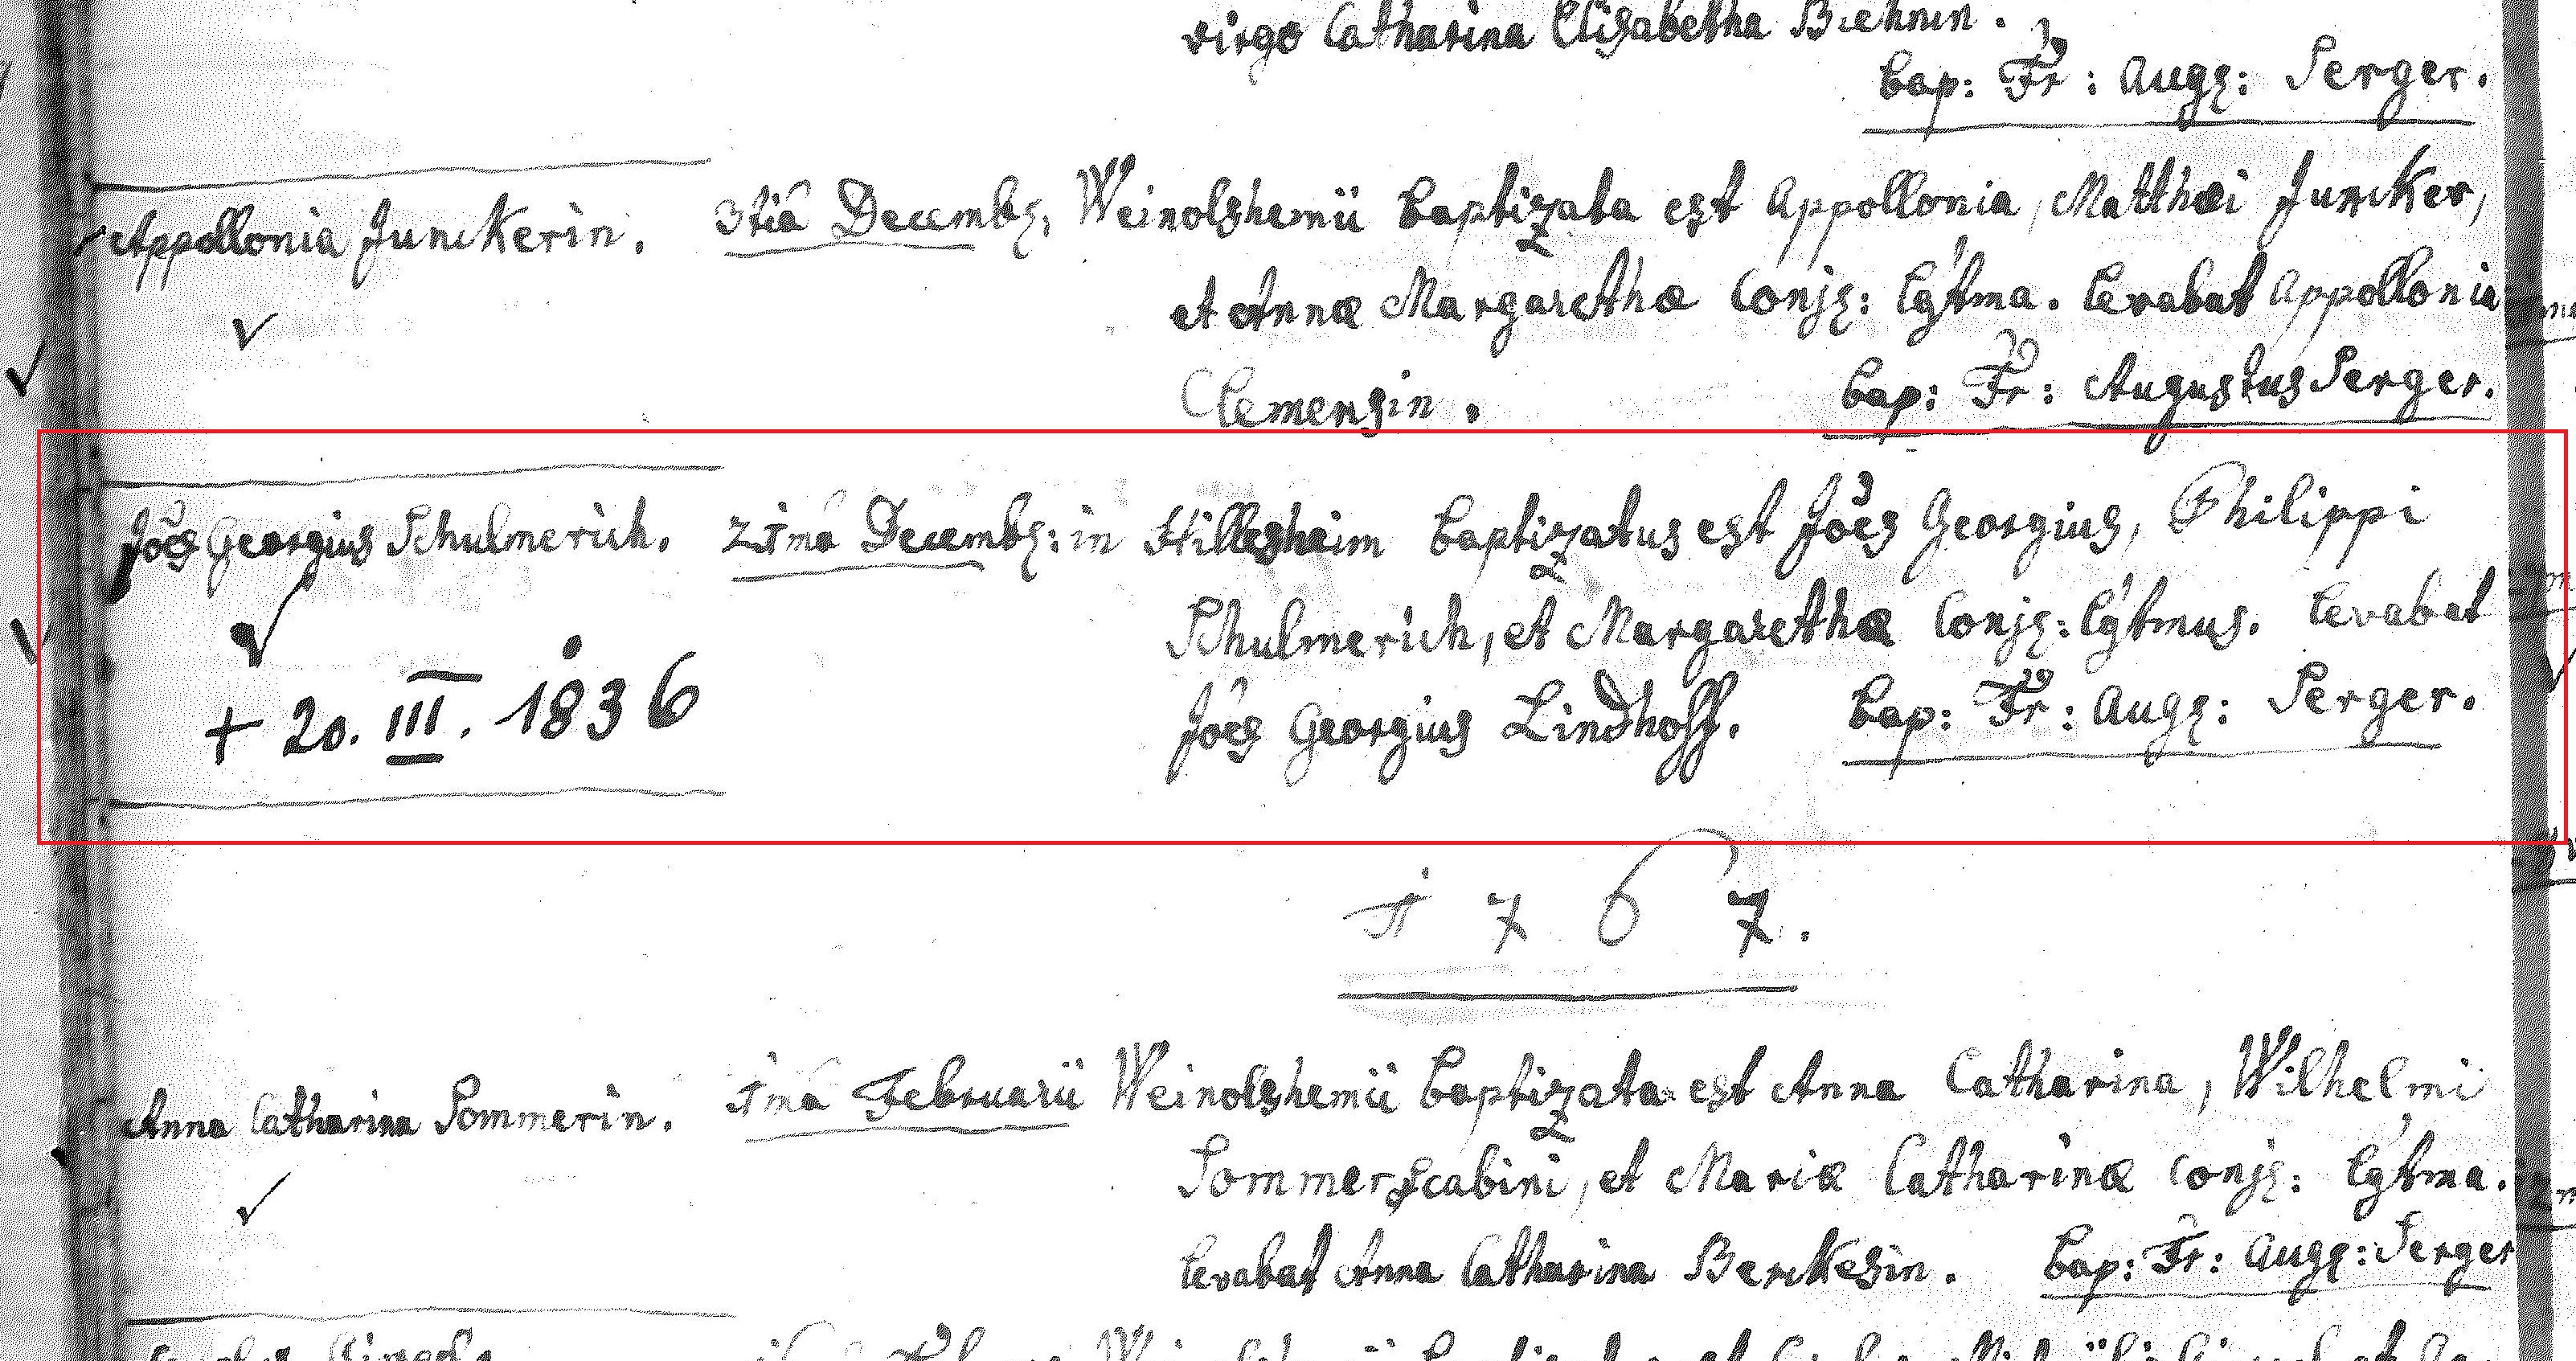 virgo Catharina Elisabetha Biehnin.
Bap: Fr: Augs: Serger.
Appollonia Junckerin. 3tiâ Decembs, Weinolshemii Baptizata est Appollonia, Matthæi Juncker,
et Annæ Margarethæ Conjs: lg'tma. Levabat Appollonia
Clemensin. Bap: Fr: Augustus Serger.
Jões Georgius Schulmerich. 21mâ Decembs: in Hillesheim Baptizatus est Jões Georgius, Philippi
Schulmerich, et Margarethæ Conjs: lg'tmus. Levabat
+ 20. III. 1836 Jões Georgius Lindhoff. Bap: Fr: Augs: Serger.
1767.
Anna Catharina Sommerin. 1mâ Februarii Weinolshemii Baptizata est Anna Catharina, Wilhelmi
Sommer scabini, et Mariæ Catharinæ Conjs: lg'tma.
Levabat Anna Catharina Berckesin. Bap: Fr: Augs: Serger